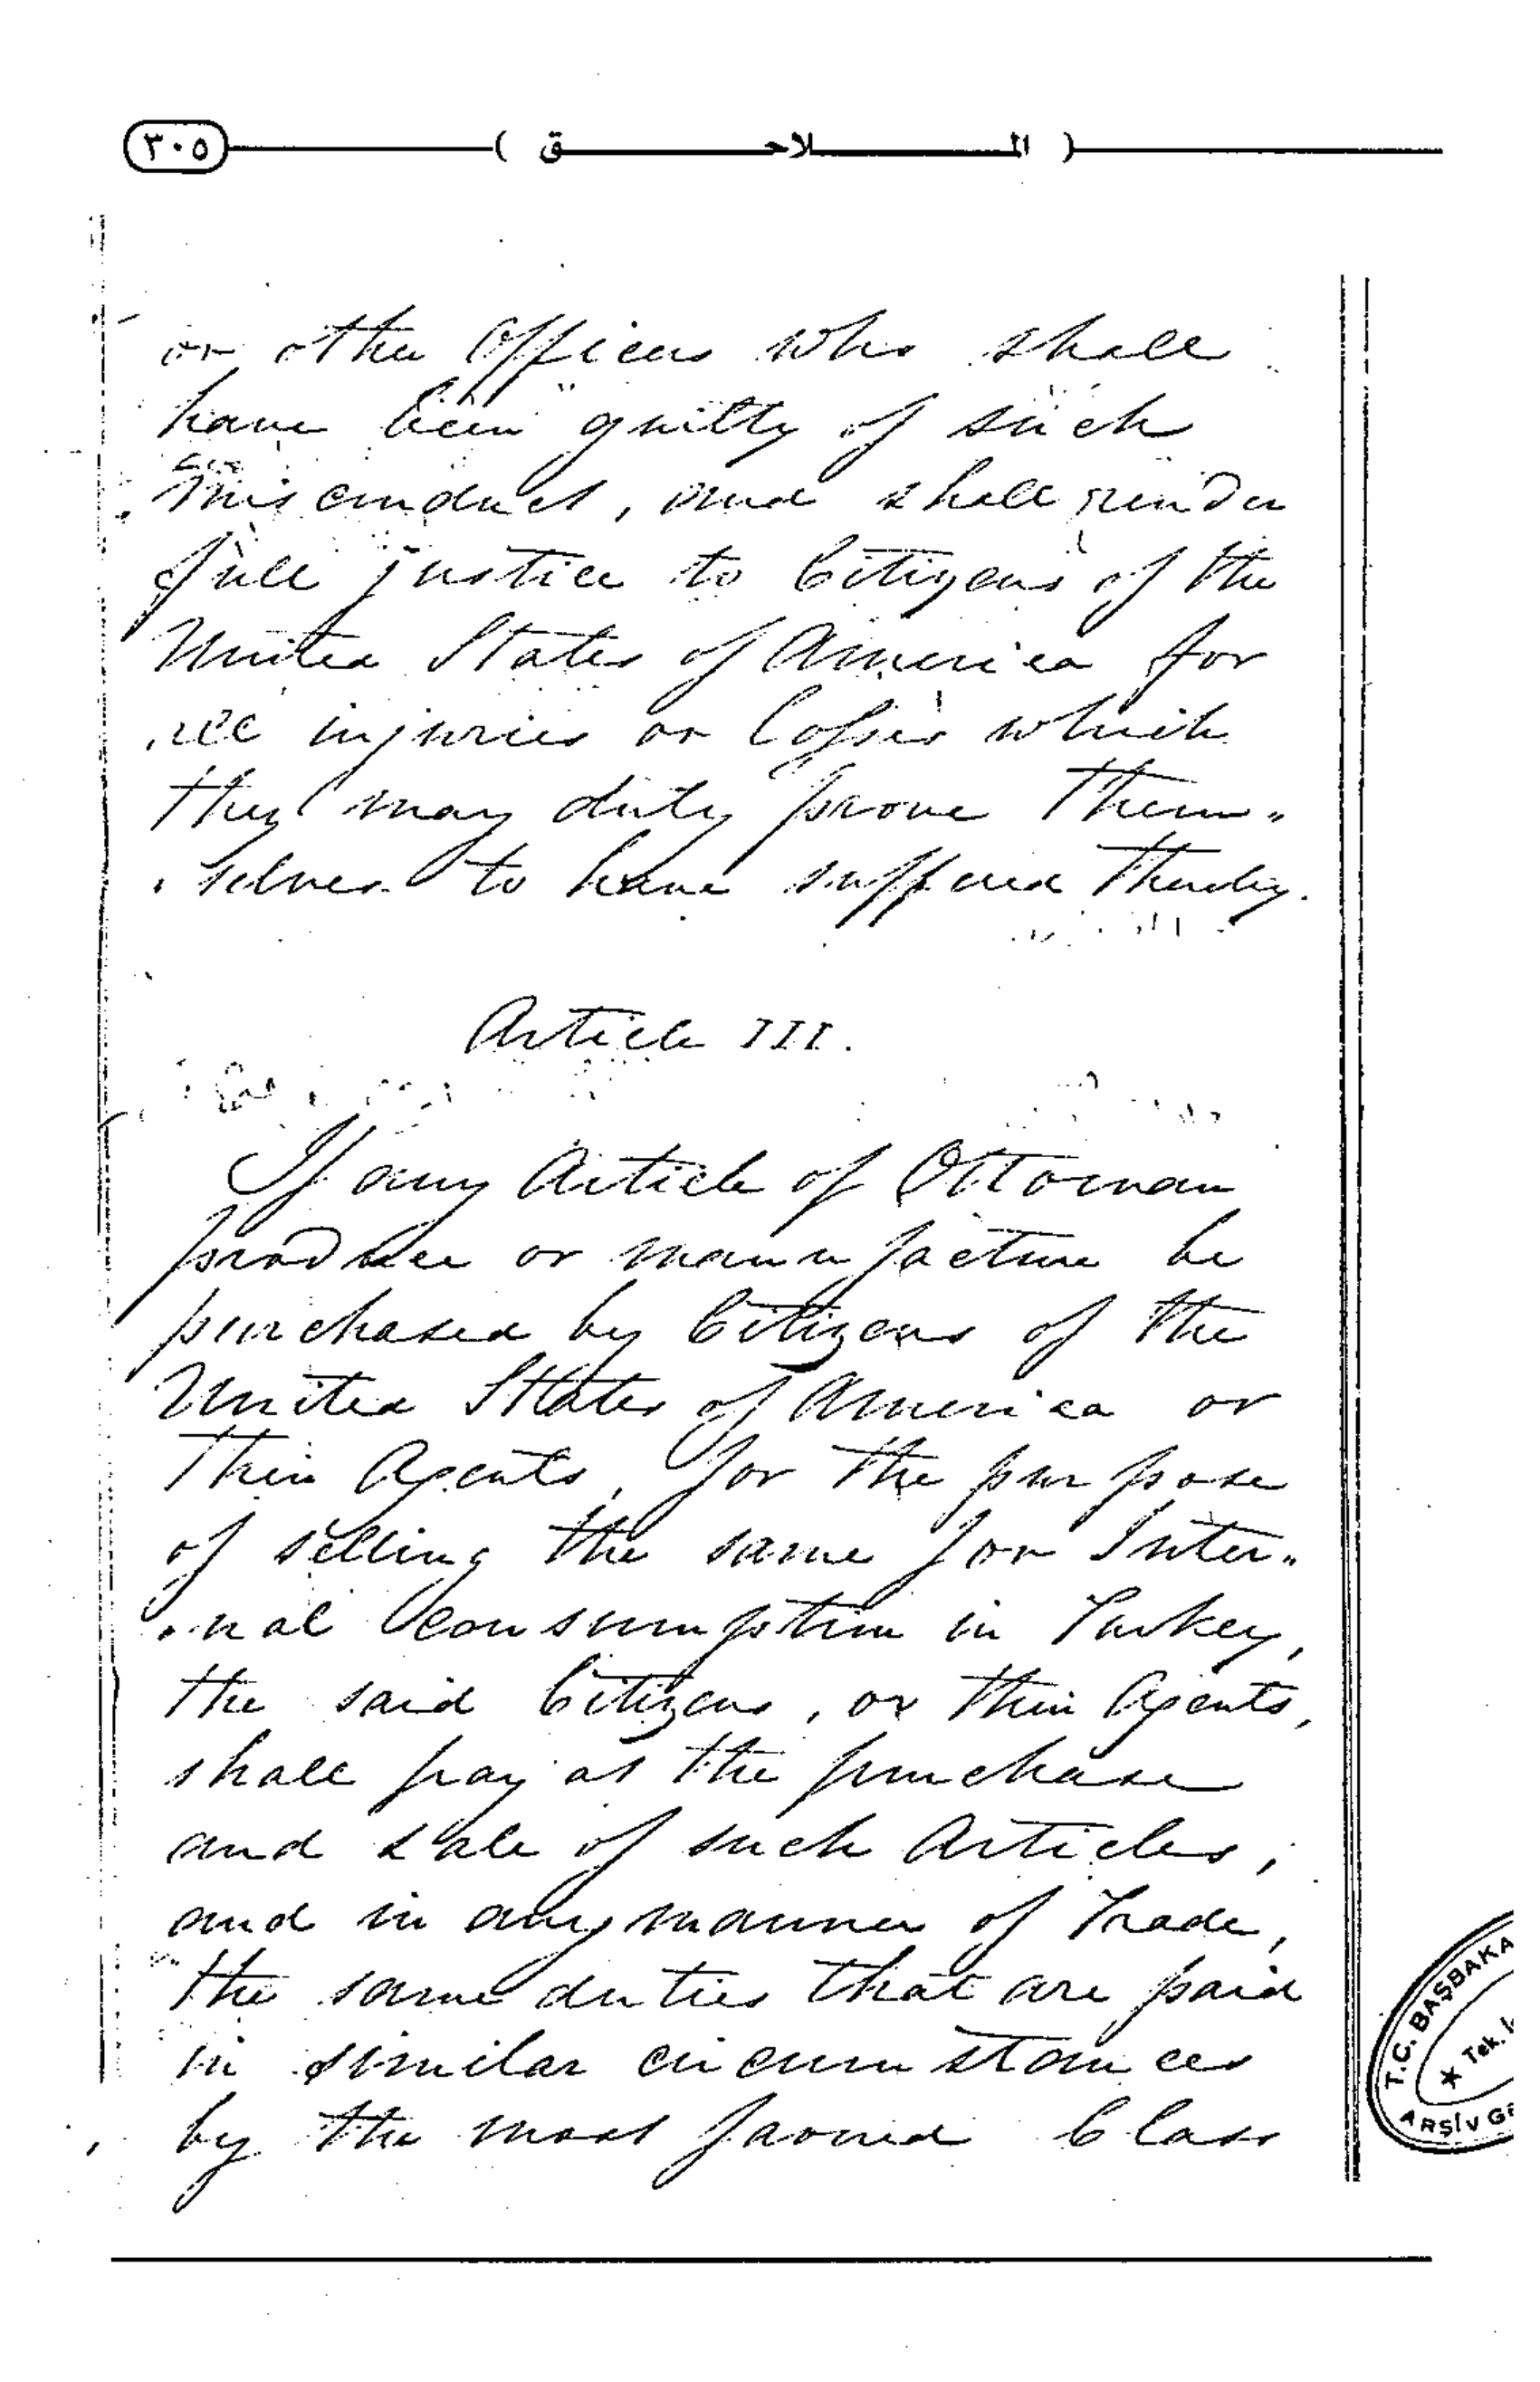 ٣٠٥ ( الملاحق )
or other Officers who shall
have been guilty of such
misconduct, and shall render
full justice to Citizens of the
United States of America for
all injuries or losses which
they may duly prove them„
„selves to have suffered thereby.
Article III.
If any Article of Ottoman
produce or manufacture be
purchased by Citizens of the
United States of America or
their Agents, for the purpose
of selling the same for Inter„
„nal consumption in Turkey,
the said Citizens, or their Agents,
shall pay at the purchase
and sale of such Articles,
and in any manner of Trade,
the same duties that are paid
in similar circumstances
by the most favored Class
T.C. BAŞBAKA
★ Tek.
ARŞİV G